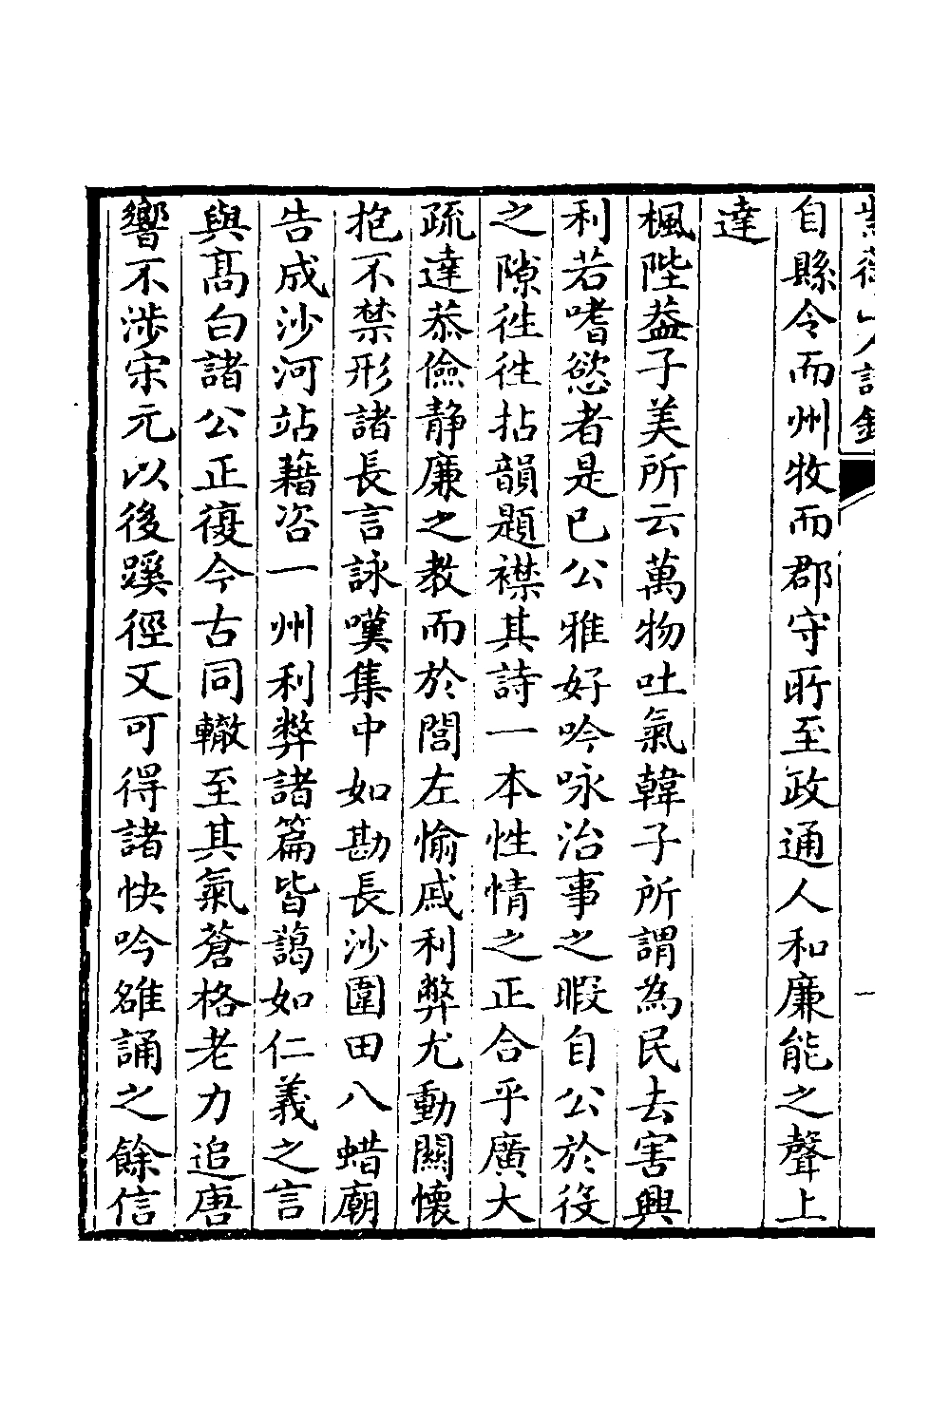 自縣令而州牧而郡守所至政通人和廉能之聲上
達
楓陛葢子美所云萬物吐氣韓子所謂為民去害興
利若嗜慾者是已公雅好吟咏治事之暇自公於役
之隙徃徃拈韻題襟其詩一本性情之正合乎廣大
疏達恭儉静廉之教而於閭左愉戚利弊尤動闗懐
抱不禁形諸長言詠嘆集中如勘長沙圍田八蜡廟
告成沙河站藉咨一州利弊諸篇皆藹如仁義之言
與髙白諸公正復今古同轍至其氣蒼格老力追唐
響不涉宋元以後蹊徑又可得諸快吟雒誦之餘信